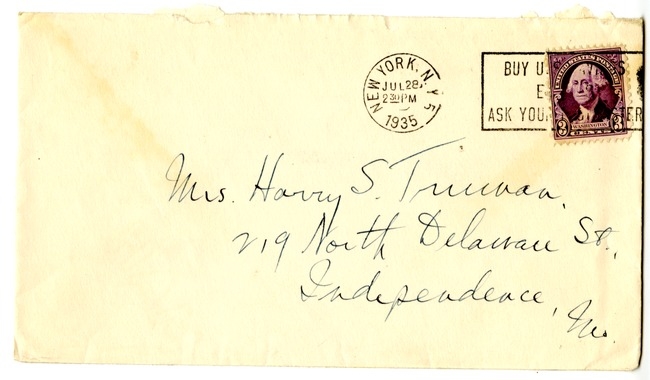 NEW YORK, N.Y. 5
JUL 28
2 30 PM
1935
BUY U.
ASK YOUR
UNITED STATES POSTAGE
3 WASHINGTON 3
CENTS
Mrs. Harry S. Truman,
219 North Delaware St.,
Independence,
Mo.